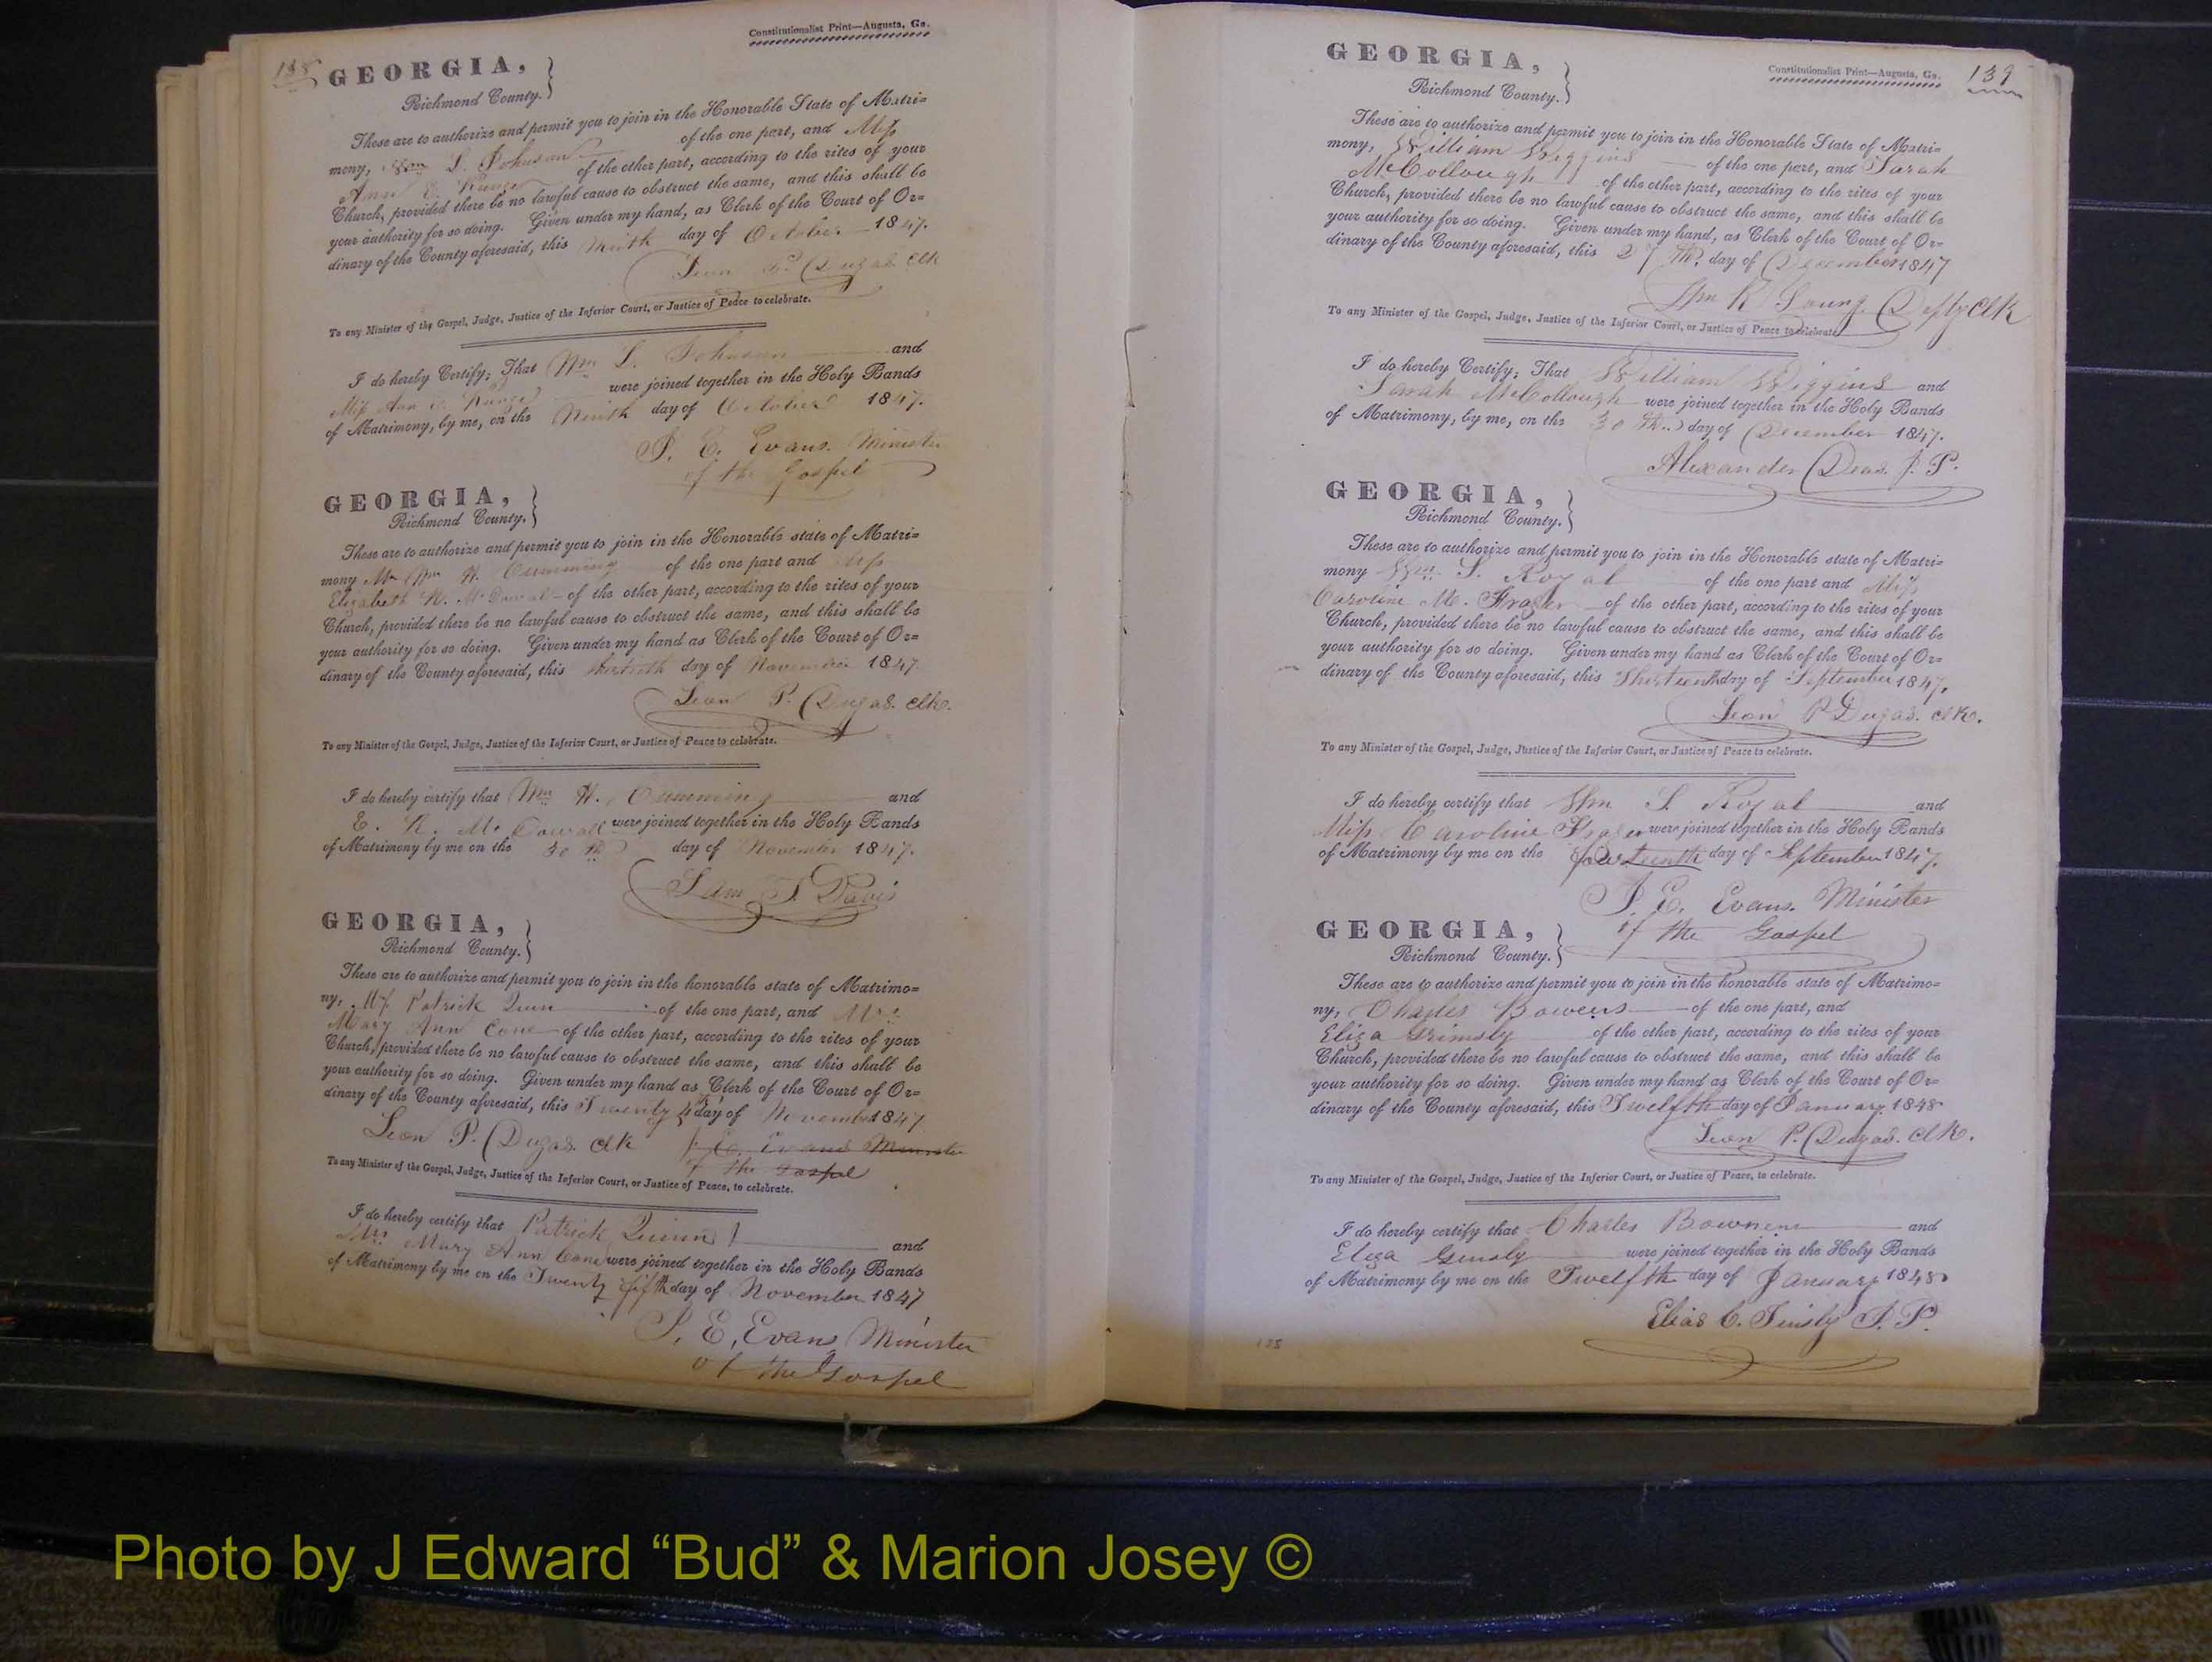 Constitutionalist Print—Augusta, Ga.
138
GEORGIA,
Richmond County.
These are to authorize and permit you to join in the Honorable State of Matri=
mony, Wm L. Johnson of the one part, and Miss
Ann E. of the other part, according to the rites of your
Church, provided there be no lawful cause to obstruct the same, and this shall be
your authority for so doing. Given under my hand, as Clerk of the Court of Or=
dinary of the County aforesaid, this Ninth day of October 1847.
Leon P. Dugas. Clk
To any Minister of the Gospel, Judge, Justice of the Inferior Court, or Justice of Peace to celebrate.
I do hereby Certify; That Wm L. Johnson and
Miss Ann E. were joined together in the Holy Bands
of Matrimony, by me, on the Ninth day of October 1847.
J. E. Evans. Minister
of the Gospel
GEORGIA,
Richmond County.
These are to authorize and permit you to join in the Honorable state of Matri=
mony Mr Wm H. Cumming of the one part and Miss
Elizabeth N. McDowal of the other part, according to the rites of your
Church, provided there be no lawful cause to obstruct the same, and this shall be
your authority for so doing. Given under my hand as Clerk of the Court of Or=
dinary of the County aforesaid, this thirtieth day of November 1847.
Leon P. Dugas. clk.
To any Minister of the Gospel, Judge, Justice of the Inferior Court, or Justice of Peace to celebrate.
I do hereby certify that Wm H. Cumming and
E. N. McDowall were joined together in the Holy Bands
of Matrimony by me on the 30 th day of November 1847.
Sam S. Davis
GEORGIA,
Richmond County.
These are to authorize and permit you to join in the honorable state of Matrimo=
ny, Mr. Patrick Quin of the one part, and Mrs
Mary Ann Cone of the other part, according to the rites of your
Church, provided there be no lawful cause to obstruct the same, and this shall be
your authority for so doing. Given under my hand as Clerk of the Court of Or=
dinary of the County aforesaid, this Twenty day of November 1847
Leon P. Dugas. clk J. E. Evans Minister
of the Gospel
To any Minister of the Gospel, Judge, Justice of the Inferior Court, or Justice of Peace, to celebrate.
I do hereby certify that Patrick Quinn and
Mrs Mary Ann Cone were joined together in the Holy Bands
of Matrimony by me on the Twenty fifth day of November 1847
J. E. Evans Minister
of the Gospel
GEORGIA,
Richmond County.
Constitutionalist Print—Augusta, Ga.
139
These are to authorize and permit you to join in the Honorable State of Matri=
mony, William Wiggins of the one part, and Sarah
McCollough of the other part, according to the rites of your
Church, provided there be no lawful cause to obstruct the same, and this shall be
your authority for so doing. Given under my hand, as Clerk of the Court of Or=
dinary of the County aforesaid, this 27 th. day of December 1847
Wm R Young Depty Clk
To any Minister of the Gospel, Judge, Justice of the Inferior Court, or Justice of Peace to celebrate.
I do hereby Certify; That William Wiggins and
Sarah McCollough were joined together in the Holy Bands
of Matrimony, by me, on the 30 th. day of December 1847.
Alexander Deas. J. P.
GEORGIA,
Richmond County.
These are to authorize and permit you to join in the Honorable state of Matri=
mony Wm. S. Royal of the one part and Miss
Caroline M. Frazer of the other part, according to the rites of your
Church, provided there be no lawful cause to obstruct the same, and this shall be
your authority for so doing. Given under my hand as Clerk of the Court of Or=
dinary of the County aforesaid, this Thirteenth day of September 1847.
Leon P Dugas. clk.
To any Minister of the Gospel, Judge, Justice of the Inferior Court, or Justice of Peace to celebrate.
I do hereby certify that Wm S. Royal and
Miss Caroline Frazer were joined together in the Holy Bands
of Matrimony by me on the fourteenth day of September 1847.
J. E. Evans. Minister
of the Gospel
GEORGIA,
Richmond County.
These are to authorize and permit you to join in the honorable state of Matrimo=
ny, Charles Bowers of the one part, and
Eliza Grimsly of the other part, according to the rites of your
Church, provided there be no lawful cause to obstruct the same, and this shall be
your authority for so doing. Given under my hand as Clerk of the Court of Or=
dinary of the County aforesaid, this Twelfth day of January 1848
Leon P. Dugas. clk.
To any Minister of the Gospel, Judge, Justice of the Inferior Court, or Justice of Peace, to celebrate.
I do hereby certify that Charles and
Eliza were joined together in the Holy Bands
of Matrimony by me on the Twelfth day of January 1848
Elias C. Tinsly J. P.
Photo by J Edward “Bud” & Marion Josey ©